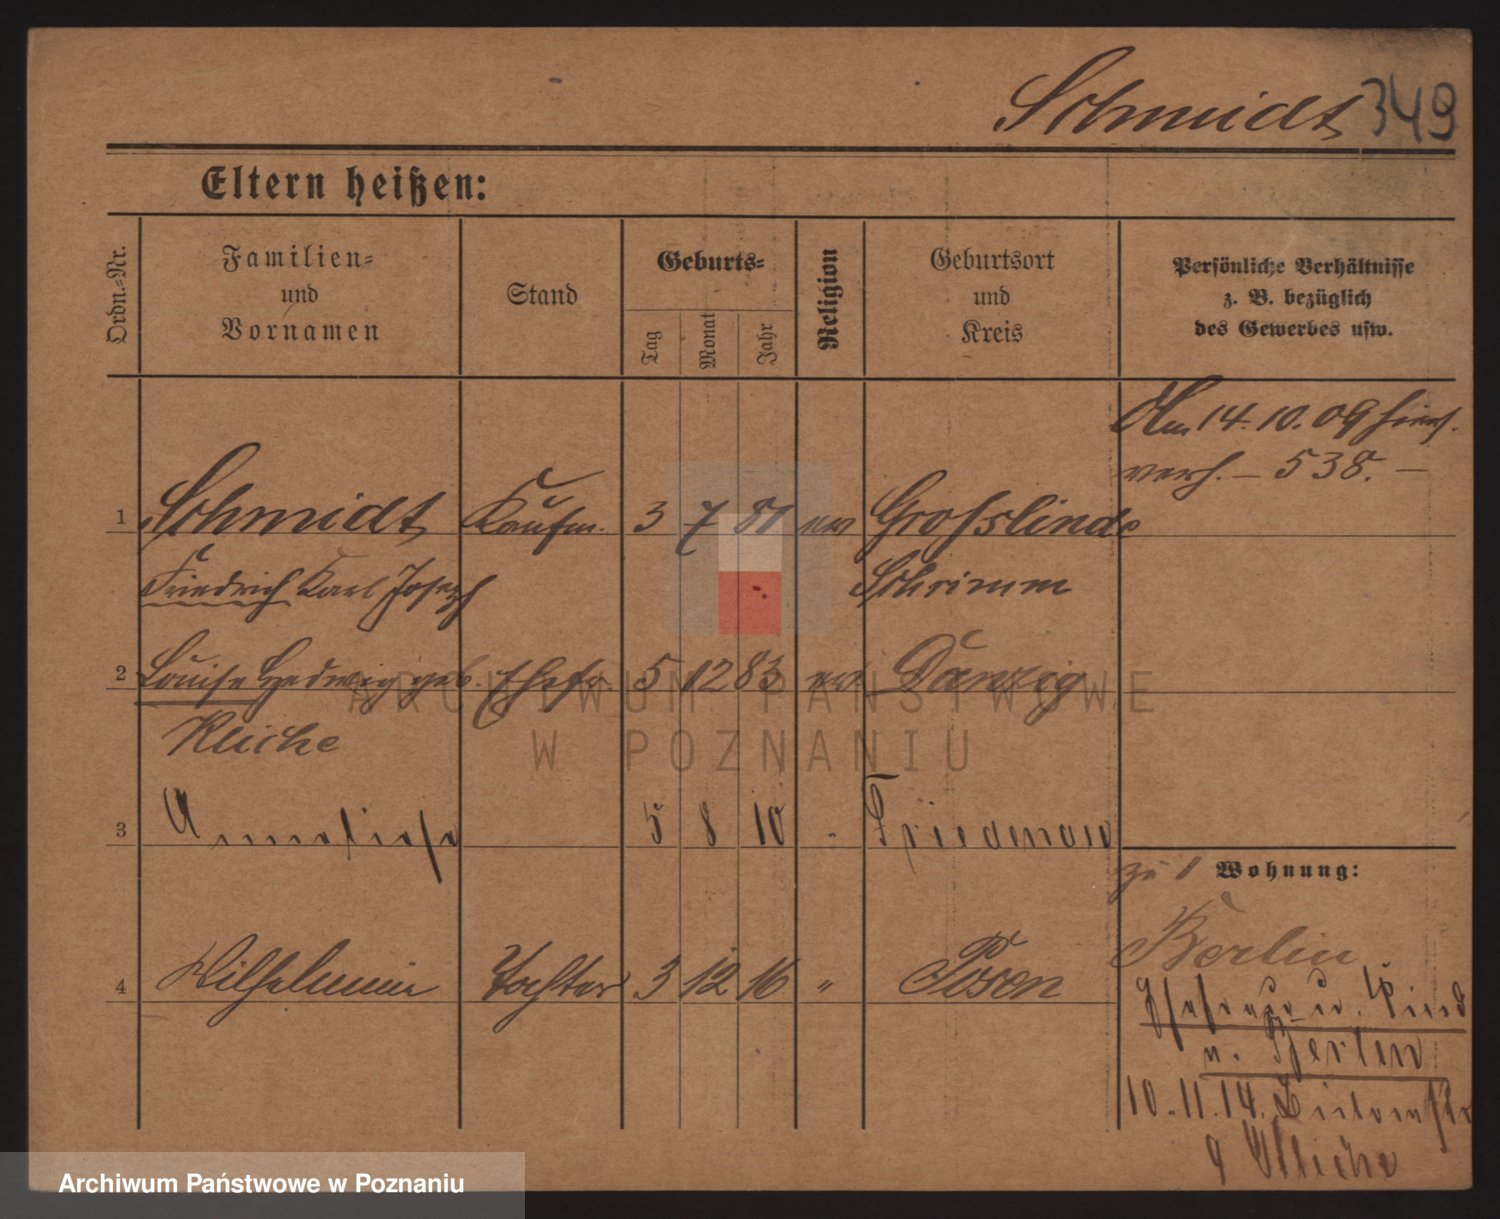 Schmidt 349
Eltern heißen:
Ordn.-Nr.
Familien-
und
Vornamen
Stand
Geburts-
Tag
Monat
Jahr
Religion
Geburtsort
und
Kreis
Persönliche Verhältnisse
z. B. bezüglich
des Gewerbes usw.
Am 14.10.09 hier
verh. – 538. –
1 Schmidt Kaufm. 3 7 81 ev Grosslinde
Friedrich Karl Joseph Schrimm
2 Louise Hedwig geb. Ehefr. 5 12 83 ev. Danzig
Reiche
3 Anneliese 5 8 10 " Friedenau
zu 1 Wohnung:
Berlin
4 Wilhelmine Tochter 3 12 16 " Posen
Ehefrau u. Kind
n. Berlin
10.11.14.
9 Reiche
ARCHIWUM PAŃSTWOWE
W POZNANIU
Archiwum Państwowe w Poznaniu